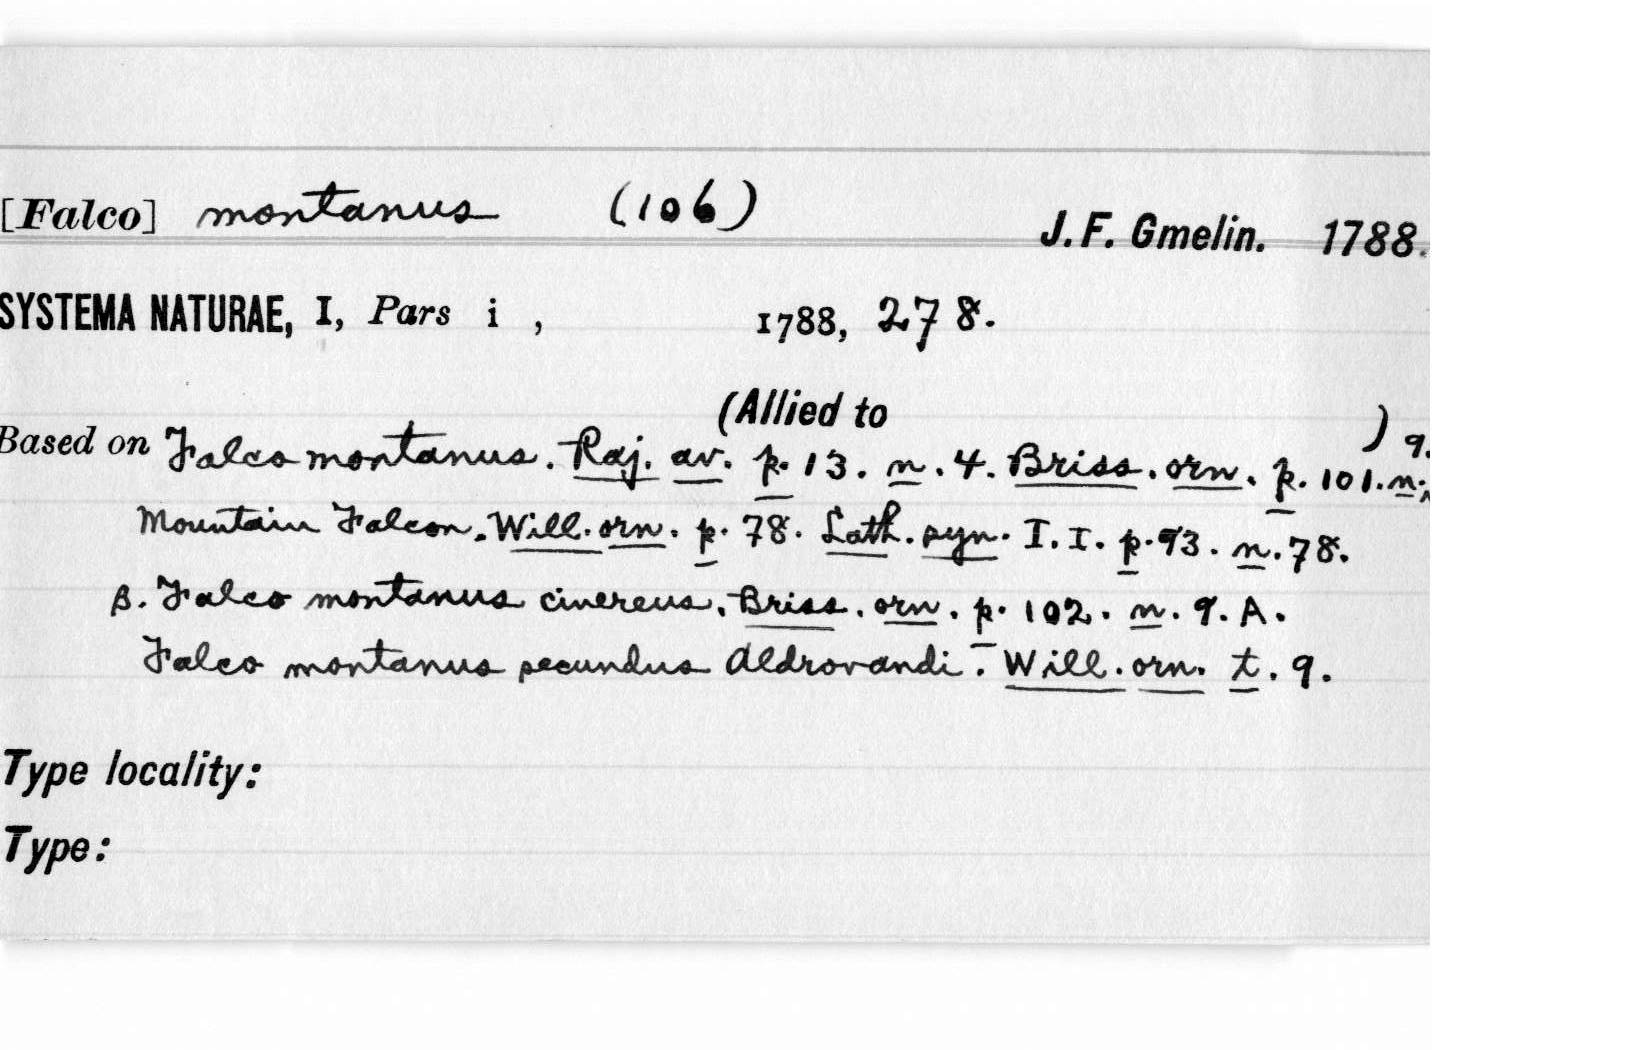 [Falco] montanus (106)
J. F. Gmelin. 1788.
SYSTEMA NATURAE, I, Pars i , 1788, 278.
(Allied to )
Based on Falco montanus. Raj. av. p. 13. n. 4. Briss. orn. p. 101. n. 9.
Mountain Falcon. Will. orn. p. 78. Lath. syn. I. I. p. 93. n. 78.
β. Falco montanus cinereus. Briss. orn. p. 102. n. 9. A.
Falco montanus secundus Aldrovandi. Will. orn. t. 9.
Type locality:
Type: